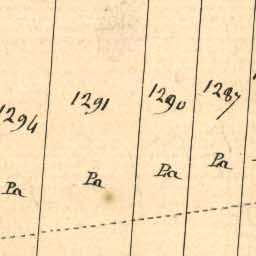 1294 1291 1290 1287
Pa Pa Pa Pa